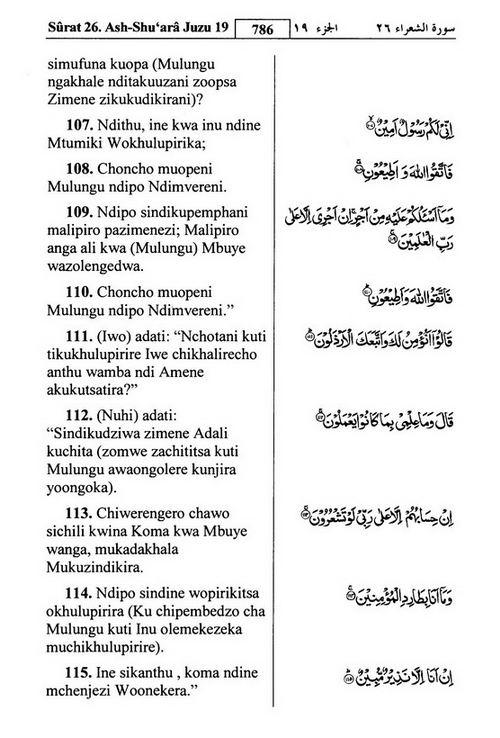 Sûrat 26. Ash-Shu‘arâ Juzu 19 786 الجزء ١٩ سورة الشعراء ٢٦
simufuna kuopa (Mulungu
ngakhale nditakuuzani zoopsa
Zimene zikukudikirani)?
107. Ndithu, ine kwa inu ndine
Mtumiki Wokhulupirika;
إِنِّي لَكُمْ رَسُولٌ أَمِينٌ ﴿١٠٧﴾
108. Choncho muopeni
Mulungu ndipo Ndimvereni.
فَاتَّقُوا اللهَ وَ أَطِيعُونِ ﴿١٠٨﴾
109. Ndipo sindikupemphani
malipiro pazimenezi; Malipiro
anga ali kwa (Mulungu) Mbuye
wazolengedwa.
وَمَا أَسْئَلُكُمْ عَلَيْهِ مِنْ أَجْرٍ إِنْ أَجْرِيَ إِلَّا عَلَى
رَبِّ الْعَلَمِينَ ﴿١٠٩﴾
110. Choncho muopeni
Mulungu ndipo Ndimvereni.”
فَاتَّقُوا اللهَ وَأَطِيعُونِ ﴿١١٠﴾
111. (Iwo) adati: “Nchotani kuti
tikukhulupirire Iwe chikhalirecho
anthu wamba ndi Amene
akukutsatira?”
قَالُوا أَنُؤْمِنُ لَكَ وَاتَّبَعَكَ الْأَرْذَلُونَ ﴿١١١﴾
112. (Nuhi) adati:
“Sindikudziwa zimene Adali
kuchita (zomwe zachititsa kuti
Mulungu awaongolere kunjira
yoongoka).
قَالَ وَمَا عِلْمِي بِمَا كَانُوا يَعْمَلُونَ ﴿١١٢﴾
113. Chiwerengero chawo
sichili kwina Koma kwa Mbuye
wanga, mukadakhala
Mukuzindikira.
إِنْ حِسَابُهُمْ إِلَّا عَلَى رَبِّي لَوْ تَشْعُرُونَ ﴿١١٣﴾
114. Ndipo sindine wopirikitsa
okhulupirira (Ku chipembedzo cha
Mulungu kuti Inu olemekezeka
muchikhulupirire).
وَمَا أَنَا بِطَارِدِ الْمُؤْمِنِينَ ﴿١١٤﴾
115. Ine sikanthu , koma ndine
mchenjezi Woonekera.”
إِنْ أَنَا إِلَّا نَذِيرٌ مُّبِينٌ ﴿١١٥﴾